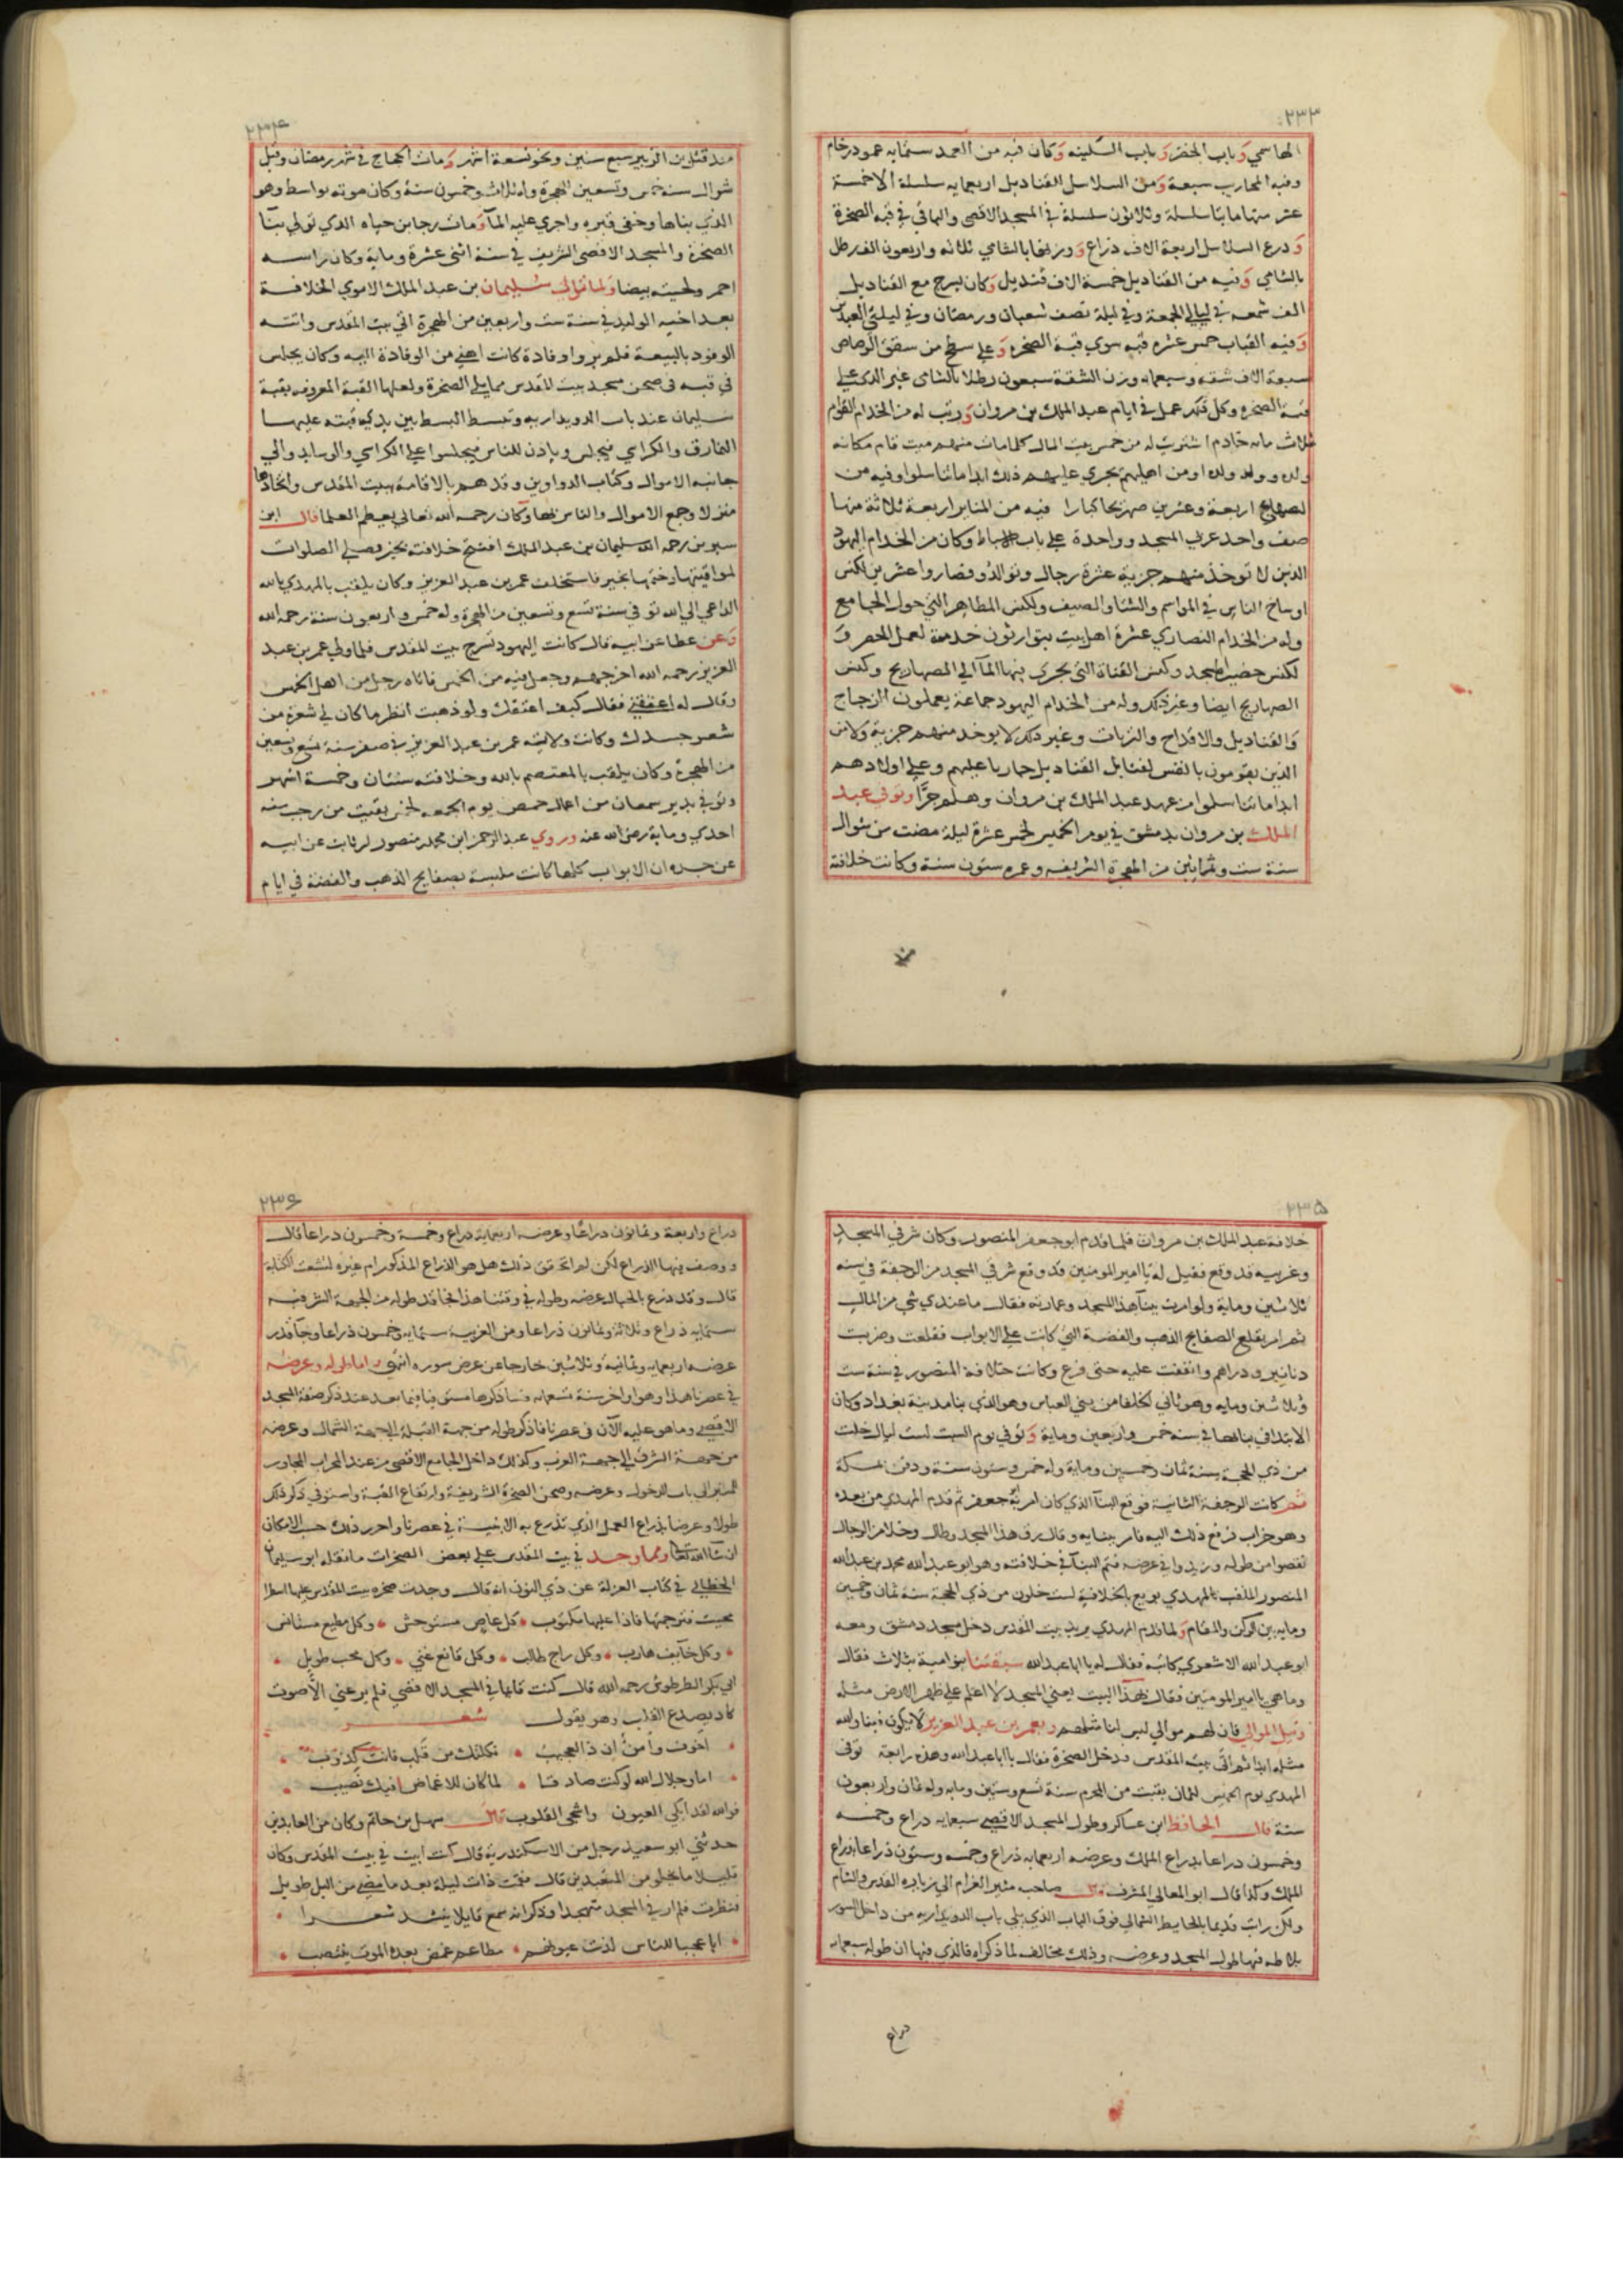 ٢٣٣
الهاشمي وباب الخضر وباب السكينه وكان فيه من العمد ستمايه عمود رخام
وفيه المحاريب سبعة ومن السلاسل القناديل اربعمايه سلسلة الا خمسة
عشر منها مايتا سلسلة وثلاثون سلسلة في المسجد الاقصى والباقي في قبه الصخرة
وذرع السلاسل اربعة الاف ذراع ووزنها بالشامي ثلاثه واربعون الف رطل
بالشامي وفيه من القناديل خمسة الاف قنديل وكان يسرج مع القناديل
الف شمعه في ليالي الجمعة وفي ليلة نصف شعبان ورمضان وفي ليلتي العيدين
وفيه القباب خمس عشره قبه سوي قبة الصخره وعلي سطح من سقق الرصاص
سبعة الاف شقه وسبعمايه وزن الشقة سبعون رطلا بالشامي غير الذي علي
قبة الصخره وكل ذلك عمل في ايام عبد الملك بن مروان ورتب له من الخدام القوام
ثلاث مايه خادم اشتريت له من خمس بيت المال كلما مات منهم ميت قام مكانه
ولده وولد ولده او من اهليهم يجري عليهم ذلك ابدا ما تناسلوا وفيه من
الصهاريج اربعة وعشرين صهريجا كبارا فيه من المنابر اربعة ثلاثة منها
صف واحد غربي المسجد وواحدة علي باب الاسباط وكان من الخدام اليهود
الذين لا توخذ منهم جزية عشرة رجال وتوالدو فصاروا عشرين لكنس
اوساخ الناس في المواسم والشتا والصيف ولكنس المطاهر التي حول الجامع
وله من الخدام النصاري عشرة اهل بيت يتوارثون خدمة لعمل الحصر و
لكنس حصير المسجد وكنس القناة التي يجري فيها المآ الي الصهاريج وكنس
الصهاريج ايضا وغير ذلك وله من الخدام اليهود جماعة يعملون الزجاج
والقناديل والاقداح والثريات وغير ذلك لا يوخد منهم جزية ولا من
الذين يقومون بالقش لفتايل القناديل جاريا عليهم وعلي اولادهم
ابدا ما تناسلوا من عهد عبد الملك بن مروان وهلم جرا وتوفي عبد
الملك بن مروان بدمشق في يوم الخميس لخمس عشرة ليلة مضت من شوال
سنة ست وثمانين من الهجرة الشريفه وعمره ستون سنة وكانت خلافته
منذ
٢٣٤
منذ قتل ابن الزبير سبع سنين ونحو تسعة اشهر ومات الحجاج في شهر رمضان وقيل
شوال سنة خمس وتسعين للهجرة وله ثلاث وخمسون سنة وكان موته بواسط وهو
الذي بناها وخفي قبره واجري عليه المآ ومات رجا بن حياه الذي تولي بنآ
الصخرة والمسجد الاقصى الشريف في سنة اثني عشرة وماية وكان راسه
احمر ولحيته بيضا ولما تولي سليمان بن عبد الملك الاموي الخلافة
بعد اخيه الوليد في سنة ست واربعين من الهجرة اتي بيت المقدس واتته
الوفود بالبيعة فلم يروا وفادة كانت اهني من الوفادة اليه وكان يجلس
في قبه في صحن مسجد بيت المقدس مما يلي الصخرة ولعلها القبة المعروفه بقبة
سليمان عند باب الدويداريه وتبسط البسط بين يدي قبته عليها
النمارق والكراسي فيجلس وياذن للناس فيجلسوا علي الكراسي والوسايد والي
جانبه الاموال وكتاب الدواوين وقد هم بالاقامة ببيت المقدس واتخاذها
منزلا وجمع الاموال والناس بها وكان رحمه الله تعالي يعظم العلما قال ابن
سيرين رحمه الله سليمان بن عبد الملك افتتح خلافته بخير وصلي الصلوات
لمواقيتها وختمها بخير فاستخلف عمر بن عبد العزيز وكان يلقب بالمهدي بالله
الداعي الي الله توفي سنة تسع وتسعين من الهجرة وله خمس واربعون سنة رحمه الله
وعن عطا عن ابيه قال كانت اليهود تسرج بيت المقدس فلما ولي عمر بن عبد
العزيز رحمه الله اخرجهم وجعل فيه من الخمس فاتاه رجل من اهل الخمس
وقال له اعتقني فقال كيف اعتقك ولو ذهبت انظر ما كان لي شعرة من
شعر جسدك وكانت ولايته عمر بن عبد العزيز في صفر سنة تسع وتسعين
من الهجرة وكان يلقب بالمعتصم بالله وخلافته سنتان وخمسة اشهر
وتوفي بدير سمعان من اعمال حمص يوم الجمعه لخمس بقيت من رجب سنه
احدي وماية رضي الله عنه وروي عبد الرحمن ابن محمد منصور ابن ثابت عن ابيه
عن جده ان الابواب كلها كانت ملبسة بصفايح الذهب والفضة في ايام
٢٣٥
خلافة عبد الملك بن مروان فلما قدم ابو جعفر المنصور وكان شرقي المسجد
وغربيه قد وقع فقيل له يا امير المومنين قد وقع شرقي المسجد من الرجفة في سنه
ثلاثين وماية ولو امرت ببنآ هذا المسجد وعمارته فقال ما عندي شي من المال
ثم امر بقلع الصفايح الذهب والفضة التي كانت علي الابواب فقلعت وضربت
دنانير ودراهم وانفقت عليه حتى فرغ وكانت خلافة المنصور في سنة ست
وثلاثين ومايه وهو ثاني الخلفا من بني العباس وهو الذي بنا مدينة بغداد وكان
الابتدا في بنائها في سنه خمس واربعين وماية وتوفي يوم السبت لست ليال خلت
من ذي الحجة سنة ثمان وخمسين وماية وله خمس وستون سنة ودفن بمكة
ثم كانت الرجفة الثانية فوقع البنآ الذي كان امر به جعفر ثم قدم المهدي من بعده
وهو خراب فرفع ذلك اليه فامر ببنايه وقال رق هذا المسجد وطال وخلا من الرجال
نقصوا من طوله وزيدوا في عرضه فتم البنآ في خلافته وهو ابو عبد الله محمد بن عبد الله
المنصور الملقب بالمهدي بويع بالخلافة لست خلون من ذي الحجة سنة ثمان وخمسين
ومايه بين الركن والمقام ولما قدم المهدي يريد بيت المقدس دخل مسجد دمشق ومعه
ابو عبد الله الاشعري كاتبه فقال له يا ابا عبد الله سبقتنا بنو امية بثلاث فقال
وما هي يا امير المومنين فقال بهذا البيت يعني المسجد لا اعلم علي ظهر الارض مثله
ونبل الموالي فان لهم موالي ليس لنا مثلهم وبعمر بن عبد العزيز لا يكون فينا والله
مثله ابدا ثم اتي بيت المقدس ودخل الصخرة فقال يا ابا عبد الله وهذه رابعة توفى
المهدي يوم الخميس لثمان بقيت من المحرم سنة تسع وستين ومايه وله ثمان واربعون
سنة قال الحافظ ابن عساكر وطول المسجد الاقصي سبعمايه دراع وخمسه
وخمسون دراعا بدراع الملك وعرضه اربعمايه ذراع وخمسه وستون ذراعا بذراع
الملك وكذا قال ابو المعالي المشرف صاحب مثير الغرام الي زيارة القدس والشام
ولكن رايت قديما بالحايط الشمالي فوق الباب الذي يلي باب الدويداريه من داخل السور
بلاطه فيها طول المسجد وعرضه وذلك مخالف لما ذكراه فالذي فيها ان طوله سبعمايه
دراع
٢٣٦
دراع واربعة وثمانون دراعا وعرضه اربعماية دراع وخمسة وخمسون دراعا قال
ووصف فيها الذراع لكن لم اتحقق ذلك هل هو الذراع المذكور ام غيره لتشعث الكتابة
قال وقد ذرع بالحبال عرضه وطوله في وقتنا هذا فجا قد طوله من الجهة الشرقيه
ستمايه ذراع وثلاثة وثمانون ذراعا ومن الغربيه ستمايه وخمسون ذراعا وجآ قدر
عرضه اربعمايه وثمانية وثلاثين خارجا عن عرض سوره انتهى واما طوله وعرضه
في عصرنا هذا وهو اواخر سنة تسعمايه فساذكرها مستوفيا فيما بعد عند ذكر صفة المسجد
الاقصي وما هو عليه الآن في عصرنا فاذكر طوله من جهة القبلة الي جهة الشمال وعرضه
من جهة الشرق الي جهة الغرب وكذلك داخل الجامع الاقصى من عند المحراب المجاور
للمنبر الي باب الدخول وعرضه وصحن الصخرة الشريفة وارتفاع القبة واستوفي ذكر ذلك
طولا وعرضا بذراع العمل الذي تذرع به الابنية في عصرنا واحرر ذلك حسب الامكان
ان شا الله تعالي ومما وجد في بيت المقدس علي بعض الصخرات ما نقله ابو سليمان
الخطابي في كتاب العزلة عن ذي النون انه قال وجدت صخره ببيت المقدس عليها اسطرا
فترجمتها فاذا عليها مكتوب • كل عاص مستوحش • وكل مطيع مستانس
• وكل خآيف هارب • وكل راج طالب • وكل قانع غني • وكل محب طويل •
ابي بكر الطرطوشي رحمه الله قال كنت قايما في المسجد الاقصي فلم يرعني الا صوت
كاد يصدع القلب وهو يقول شعر
• اخوف وأمن ان ذا لعجيب • ثكلتك من قلب فانت كذوب •
• اما وجلال الله لو كنت صادقا • لما كان للاغماض فيك نصيب •
فوالله لقد ابكي العيون واشجى القلوب قال سهل بن حاتم وكان من العابدين
حدثني ابو سعيد رجل من الاسكندرية قال كنت ابيت في بيت المقدس وكان
قليلا ما يخلو من المتعبدين قال فقمت ذات ليلة بعد ما مضي من الليل طويل
فنظرت فلم ار في المسجد متهجدا وذكر انه سمع قايلا ينشد شعرا •
• ايا عجبا للناس لذت عيونهم • مطاعم غمض بعده الموت ينتصب •